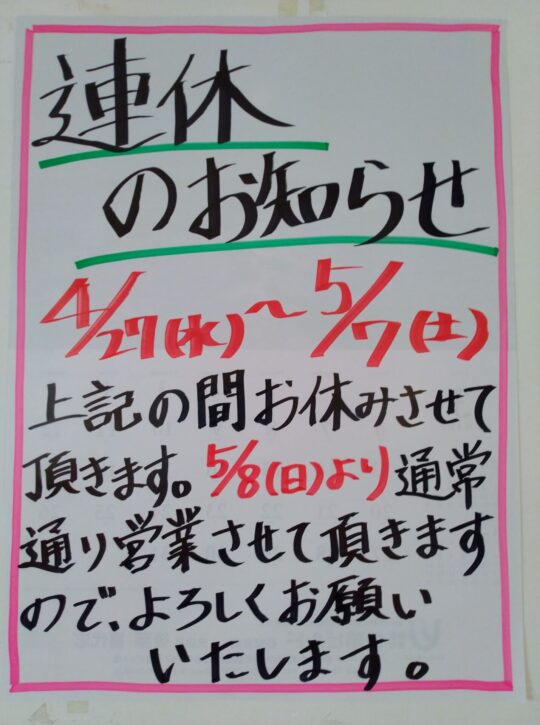 連休
のお知らせ
4/27(水)～5/7(土)
上記の間お休みさせて
頂きます。5/8(日)より通常
通り営業させて頂きます
ので、よろしくお願い
いたします。